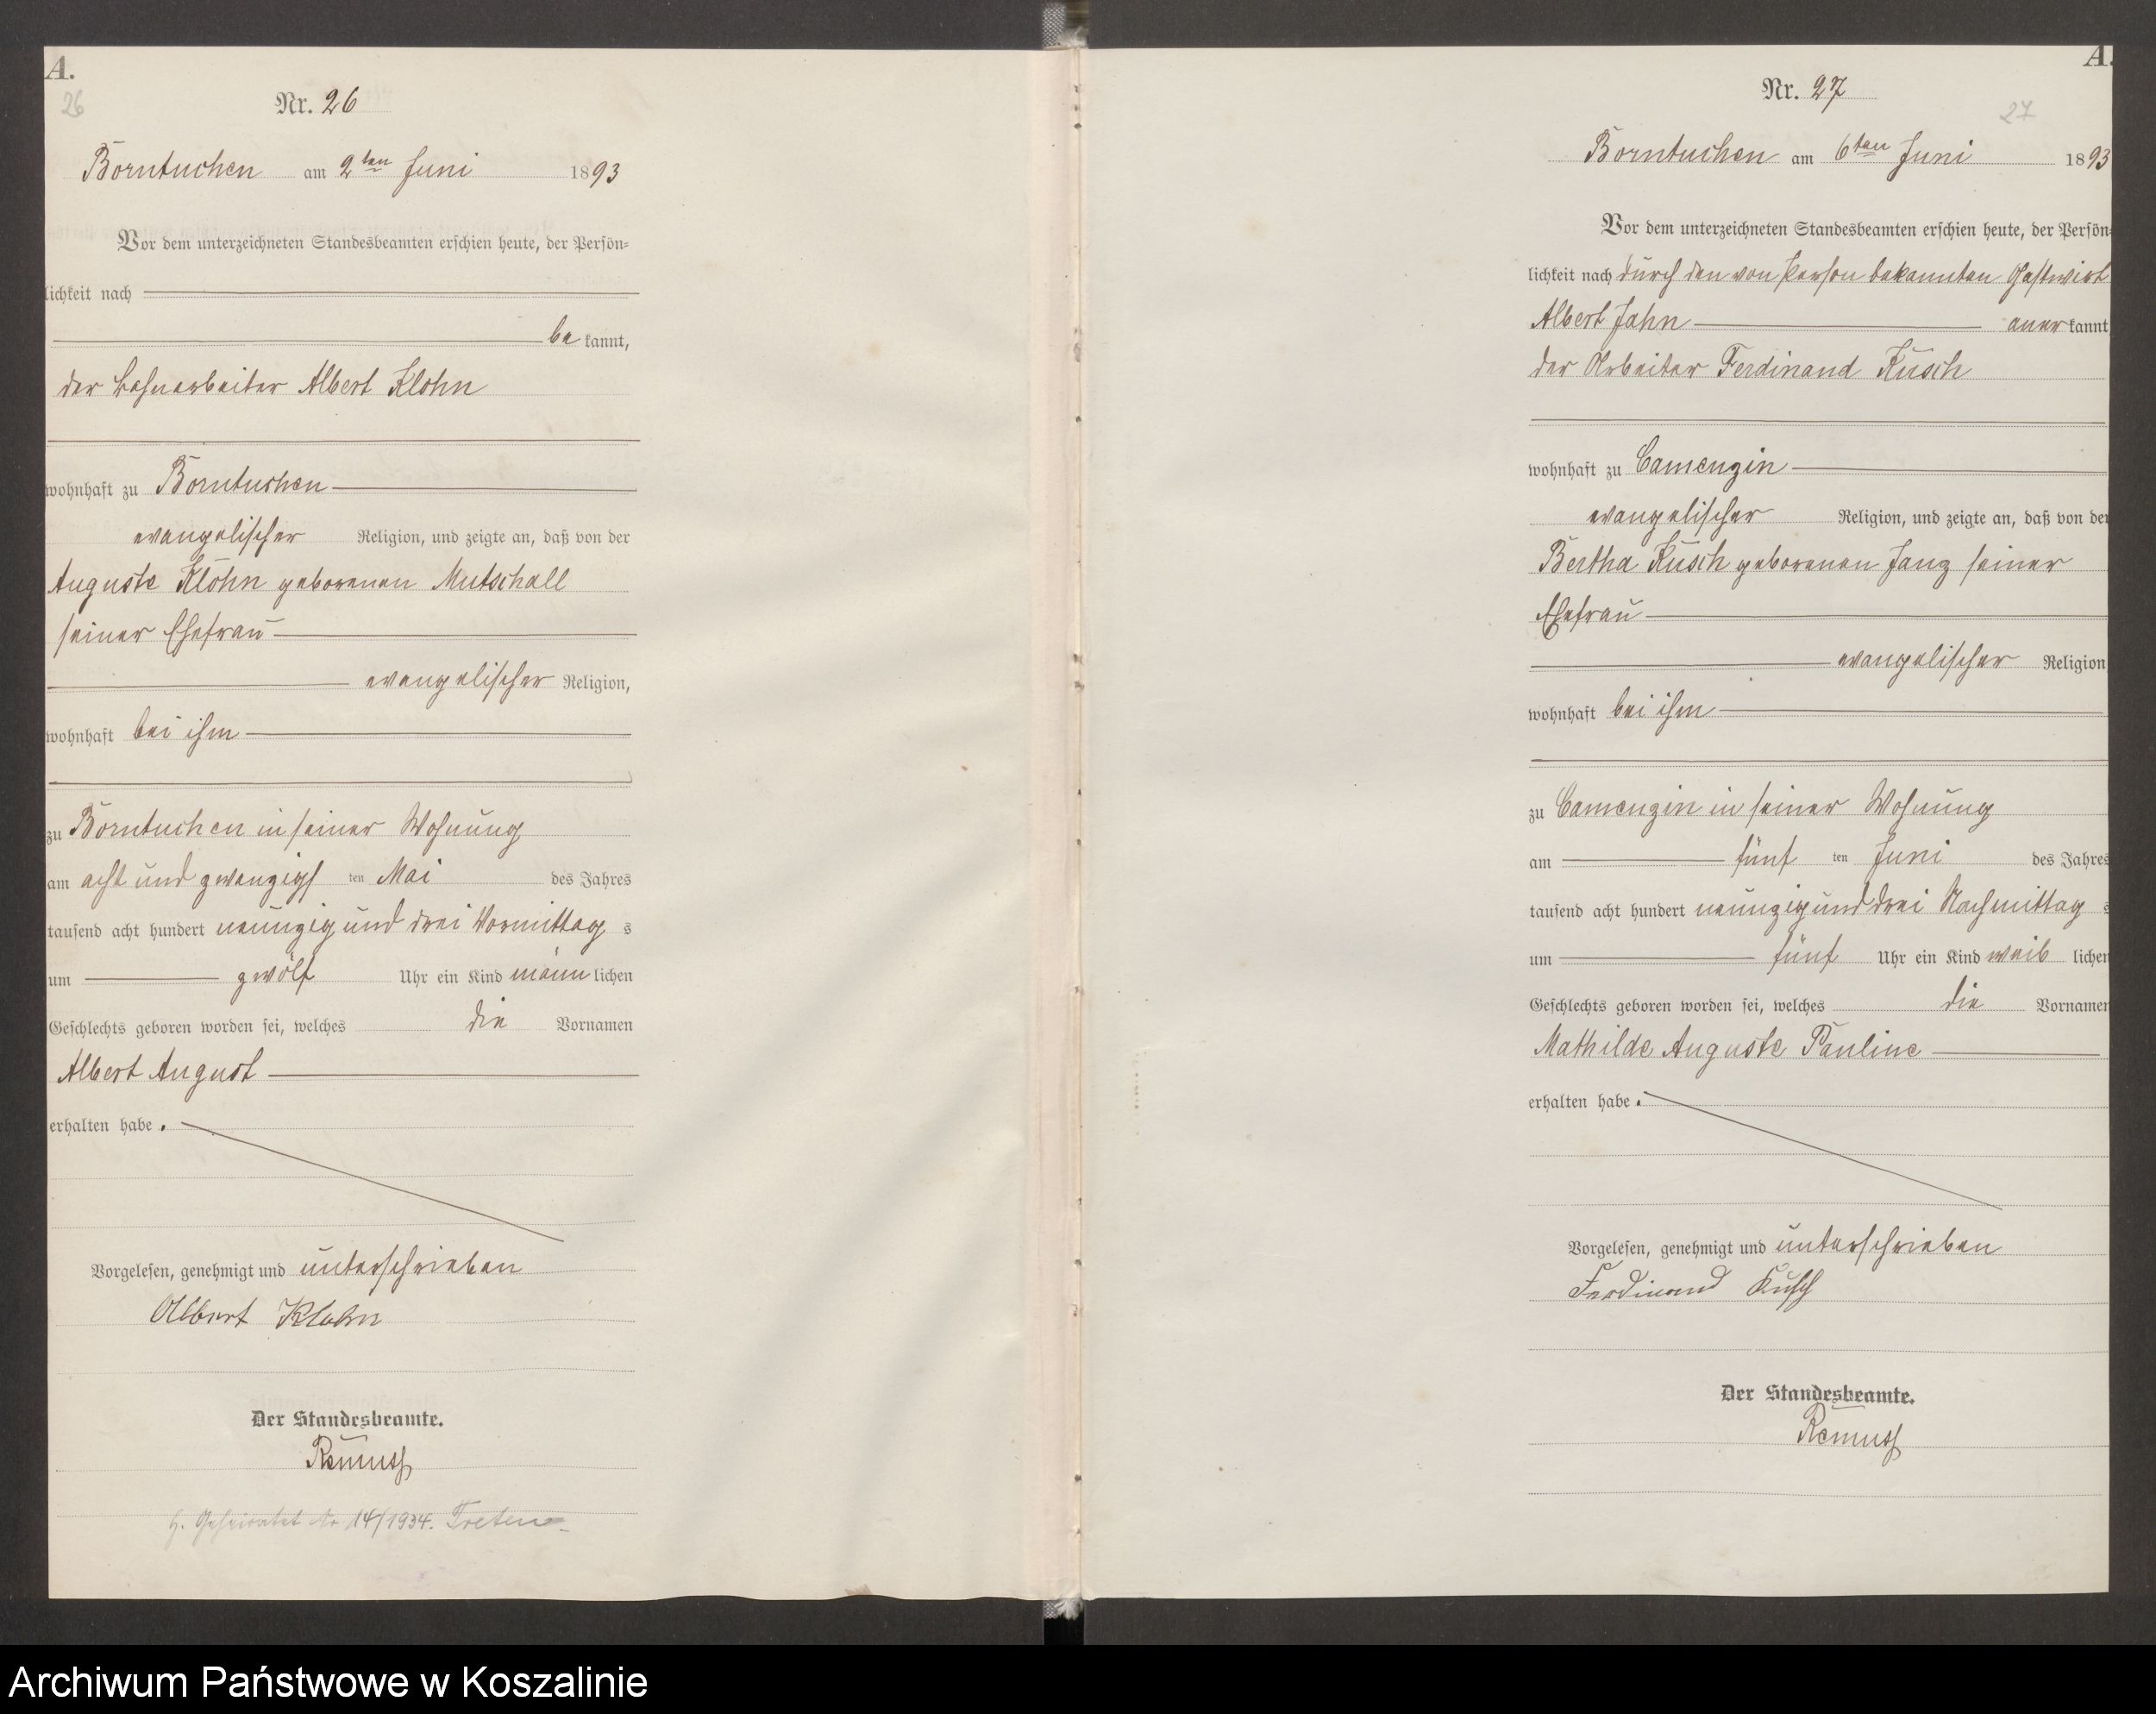 A.
26
Nr. 26
Borntuchen am 2ten Juni 1893
Vor dem unterzeichneten Standesbeamten erschien heute, der Persön-
lichkeit nach
be kannt,
der Bahnarbeiter Albert Klohn
wohnhaft zu Borntuchen
evangelischer Religion, und zeigte an, daß von der
Auguste Klohn geborenen Mutschall
seiner Ehefrau
evangelischer Religion,
wohnhaft bei ihm
zu Borntuchen in seiner Wohnung
am acht und zwanzigs ten Mai des Jahres
tausend acht hundert neunzig und drei Vormittag s
um zwölf Uhr ein Kind männ lichen
Geschlechts geboren worden sei, welches die Vornamen
Albert August
erhalten habe.
Vorgelesen, genehmigt und unterschrieben
Albert Klohn
Der Standesbeamte.
Remuss
H. Geheiratet Nr 14/1934. Treten
A.
Nr. 27
27
Borntuchen am 6ten Juni 1893
Vor dem unterzeichneten Standesbeamten erschien heute, der Persön-
lichkeit nach durch den von Person bekannten Gastwirt
Albert Jahn aner kannt
der Arbeiter Ferdinand Kusch
wohnhaft zu Camenzin
evangelischer Religion, und zeigte an, daß von der
Bertha Kusch geborenen Janz seiner
Ehefrau
evangelischer Religion
wohnhaft bei ihm
zu Camenzin in seiner Wohnung
am fünf ten Juni des Jahres
tausend acht hundert neunzig und drei Nachmittag s
um fünf Uhr ein Kind weib lichen
Geschlechts geboren worden sei, welches die Vornamen
Mathilde Auguste Pauline
erhalten habe.
Vorgelesen, genehmigt und unterschrieben
Ferdinand Kusch
Der Standesbeamte.
Remuss
Archiwum Państwowe w Koszalinie